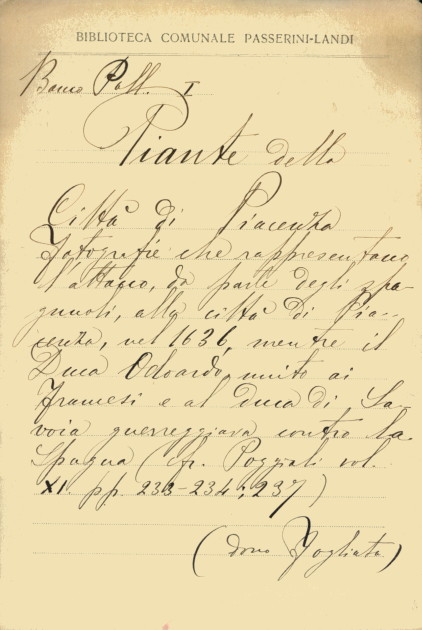 BIBLIOTECA COMUNALE PASSERINI-LANDI
Banco Pall. I
Piante della
Città di Piacenza
fotografie che rappresentano
l'attacco, da parte degli spa-
gnuoli, alla città di Pia-
cenza, nel 1636, mentre il
Duca Odoardo, unito ai
Francesi e al duca di Sa-
voia guerreggiava contro la
Spagna (cfr. Poggiali vol.
XI. pp. 233-234; 237)
(dono